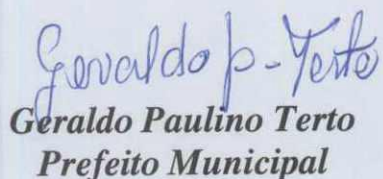 Geraldo p. Terto
Geraldo Paulino Terto
Prefeito Municipal